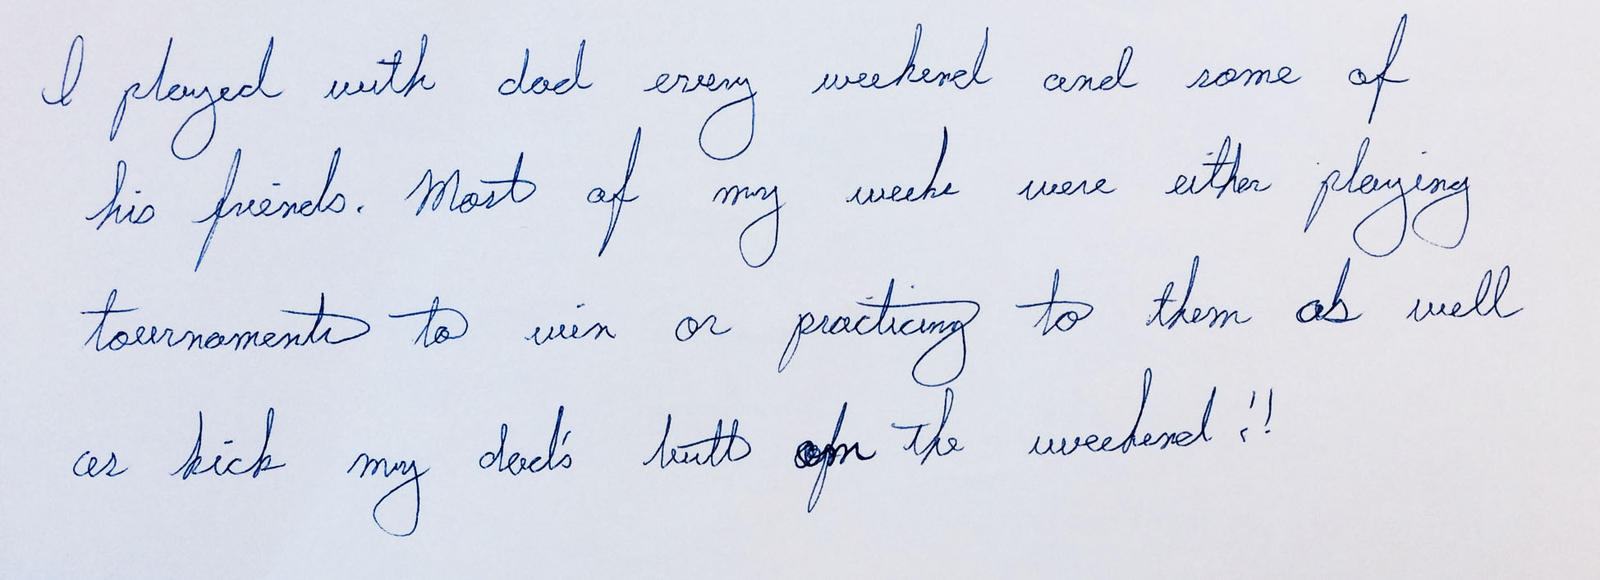 I played with dad every weekend and some of
his friends. Most of my week were either playing
tournaments to win or practicing to them as well
as kick my dad's butt on the weekend!!